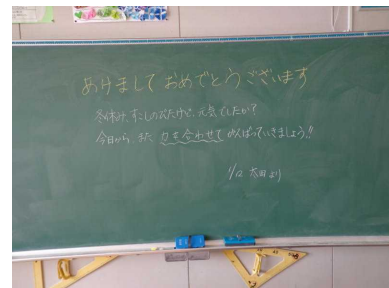 あけましておめでとうございます
冬休み、すこしのびたけど、元気でしたか?
今日から、また 力を合わせて がんばっていきましょう!!
1/12 太田より